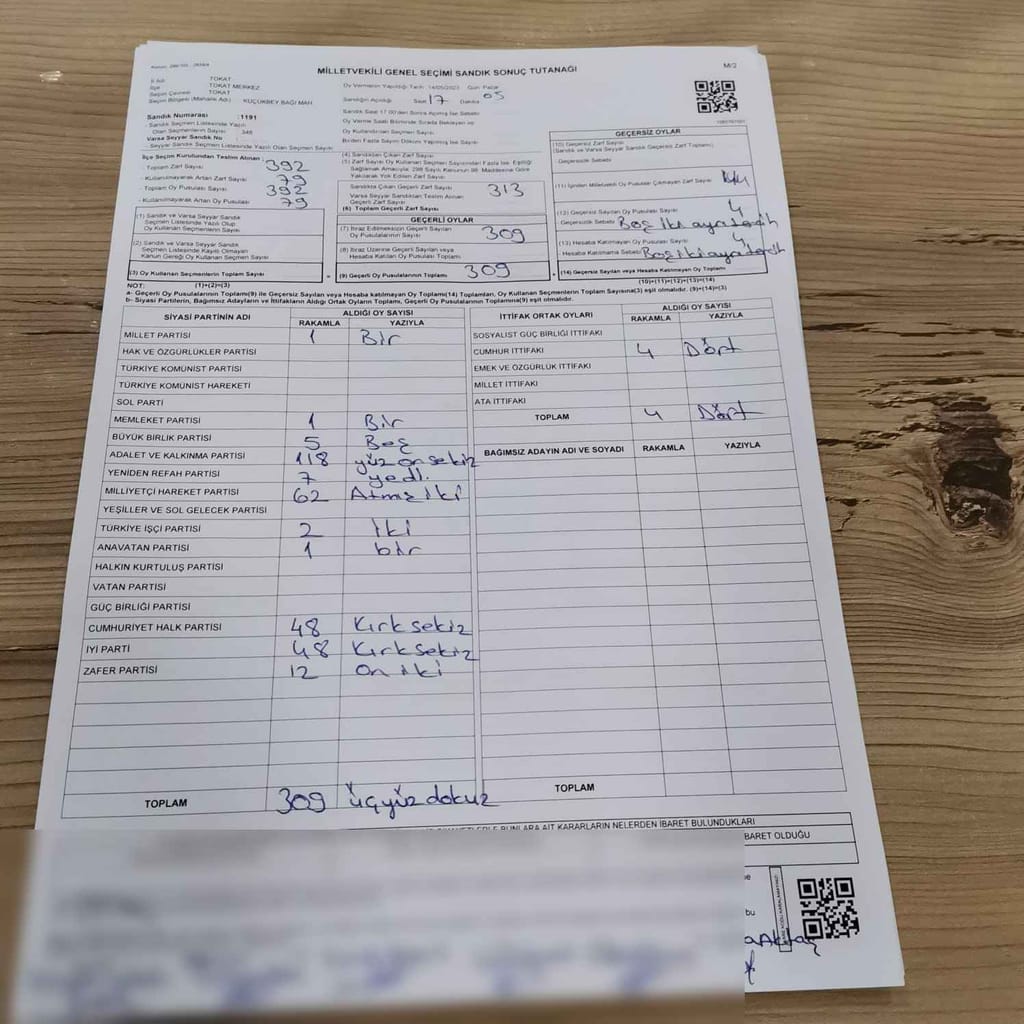 MİLLETVEKİLİ GENEL SEÇİMİ SANDIK SONUÇ TUTANAĞI
M/2
İl Adı : TOKAT
İlçe : TOKAT MERKEZ
Seçim Çevresi : TOKAT
Seçim Bölgesi (Mahalle Adı) : KÜÇÜKBEY BAĞI MAH
Oy Vermenin Yapıldığı Tarih: 14/05/2023 Gün Pazar
Sandığın Açıldığı Saat 17 Dakika 05
Sandık Numarası :1191
- Sandık Seçmen Listesinde Yazılı
Olan Seçmenlerin Sayısı : 348
Varsa Seyyar Sandık No :
- Seyyar Sandık Seçmen Listesinde Yazılı Olan Seçmen Sayısı:
Sandık Saat 17.00'den Sonra Açılmış İse Sebebi
Oy Verme Saati Bitiminde Sırada Bekleyen ve
Oy Kullandırılan Seçmen Sayısı
Birden Fazla Sayım Döküm Yapılmış İse Sayısı
İlçe Seçim Kurulundan Teslim Alınan ;
- Toplam Zarf Sayısı 392
- Kullanılmayarak Artan Zarf Sayısı 79
- Toplam Oy Pusulası Sayısı 392
- Kullanılmayarak Artan Oy Pusulası 79
(1) Sandık ve Varsa Seyyar Sandık
Seçmen Listesinde Yazılı Olup
Oy Kullanan Seçmenlerin Sayısı
(2) Sandık ve Varsa Seyyar Sandık
Seçmen Listesinde Kayıtlı Olmayan
Kanun Gereği Oy Kullanan Seçmen Sayısı
(3) Oy Kullanan Seçmenlerin Toplam Sayısı
(1)+(2)=(3)
(4) Sandıktan Çıkan Zarf Sayısı
(5) Zarf Sayısı Oy Kullanan Seçmen Sayısından Fazla İse, Eşitliği
Sağlamak Amacıyla, 298 Sayılı Kanunun 98. Maddesine Göre
Yakılarak Yok Edilen Zarf Sayısı
Sandıkta Çıkan Geçerli Zarf Sayısı 313
Varsa Seyyar Sandıktan Teslim Alınan
Geçerli Zarf Sayısı
(6) Toplam Geçerli Zarf Sayısı
GEÇERLİ OYLAR
(7) İtiraz Edilmeksizin Geçerli Sayılan
Oy Pusulalarının Sayısı 309
(8) İtiraz Üzerine Geçerli Sayılan veya
Hesaba Katılan Oy Pusulası Sayısı
(9) Geçerli Oy Pusulalarının Toplamı 309
GEÇERSİZ OYLAR
(10) Geçersiz Zarf Sayısı
(Sandık ve Varsa Seyyar Sandık Geçersiz Zarf Toplamı)
Geçersizlik Sebebi
(11) İçinden Milletvekili Oy Pusulası Çıkmayan Zarf Sayısı
(12) Geçersiz Sayılan Oy Pusulası Sayısı 4
Geçersizlik Sebebi Boş iki ayrı tercih
(13) Hesaba Katılmayan Oy Pusulası Sayısı 4
Hesaba Katılmama Sebebi Boş iki ayrı tercih
(14) Geçersiz Sayılan veya Hesaba Katılmayan Oy Toplamı
(10)+(11)+(12)+(13)=(14)
NOT:
a- Geçerli Oy Pusulalarının Toplamı(9) ile Geçersiz Sayılan veya Hesaba katılmayan Oy Toplamı(14) Toplamları, Oy Kullanan Seçmenlerin Toplam Sayısına(3) eşit olmalıdır. (9)+(14)=(3)
b- Siyasi Partilerin, Bağımsız Adayların ve İttifakların Aldığı Ortak Oyların Toplamı, Geçerli Oy Pusulalarının Toplamına(9) eşit olmalıdır.
SİYASİ PARTİNİN ADI ALDIĞI OY SAYISI
RAKAMLA YAZIYLA
MİLLET PARTİSİ 1 Bir
HAK VE ÖZGÜRLÜKLER PARTİSİ
TÜRKİYE KOMÜNİST PARTİSİ
TÜRKİYE KOMÜNİST HAREKETİ
SOL PARTİ
MEMLEKET PARTİSİ 1 Bir
BÜYÜK BİRLİK PARTİSİ 5 Beş
ADALET VE KALKINMA PARTİSİ 118 yüz on sekiz
YENİDEN REFAH PARTİSİ 7 yedi
MİLLİYETÇİ HAREKET PARTİSİ 62 Atmış iki
YEŞİLLER VE SOL GELECEK PARTİSİ
TÜRKİYE İŞÇİ PARTİSİ 2 iki
ANAVATAN PARTİSİ 1 bir
HALKIN KURTULUŞ PARTİSİ
VATAN PARTİSİ
GÜÇ BİRLİĞİ PARTİSİ
CUMHURİYET HALK PARTİSİ 48 Kırk sekiz
İYİ PARTİ 48 Kırk sekiz
ZAFER PARTİSİ 12 on iki
TOPLAM 309 üçyüz dokuz
İTTİFAK ORTAK OYLARI ALDIĞI OY SAYISI
RAKAMLA YAZIYLA
SOSYALİST GÜÇ BİRLİĞİ İTTİFAKI
CUMHUR İTTİFAKI 4 Dört
EMEK VE ÖZGÜRLÜK İTTİFAKI
MİLLET İTTİFAKI
ATA İTTİFAKI
TOPLAM 4 Dört
BAĞIMSIZ ADAYIN ADI VE SOYADI RAKAMLA YAZIYLA
TOPLAM
BUNLARA AİT KARARLARIN NELERDEN İBARET BULUNDUKLARI
BARET OLDUĞU
bu